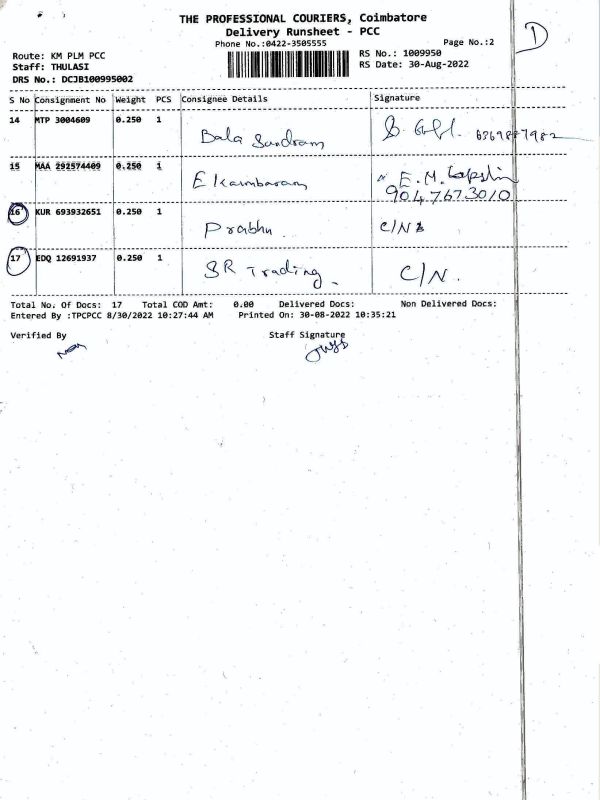 THE PROFESSIONAL COURIERS, Coimbatore
Delivery Runsheet - PCC
Phone No.:0422-3505555
Page No.:2
D
Route: KM PLM PCC
RS No.: 1009950
Staff: THULASI
RS Date: 30-Aug-2022
DRS No.: DCJB100995002
S No Consignment No Weight PCS Consignee Details Signature
14 MTP 3004609 0.250 1
Bala Sundram 6369887982
15 MAA 292574409 0.250 1
Ekambaram E. M.
904.767.3010
16 KUR 693932651 0.250 1
Prabhu C/N
17 EDQ 12691937 0.250 1
SR Trading. C/N.
Total No. Of Docs: 17 Total COD Amt: 0.00 Delivered Docs: Non Delivered Docs:
Entered By :TPCPCC 8/30/2022 10:27:44 AM Printed On: 30-08-2022 10:35:21
Verified By Staff Signature